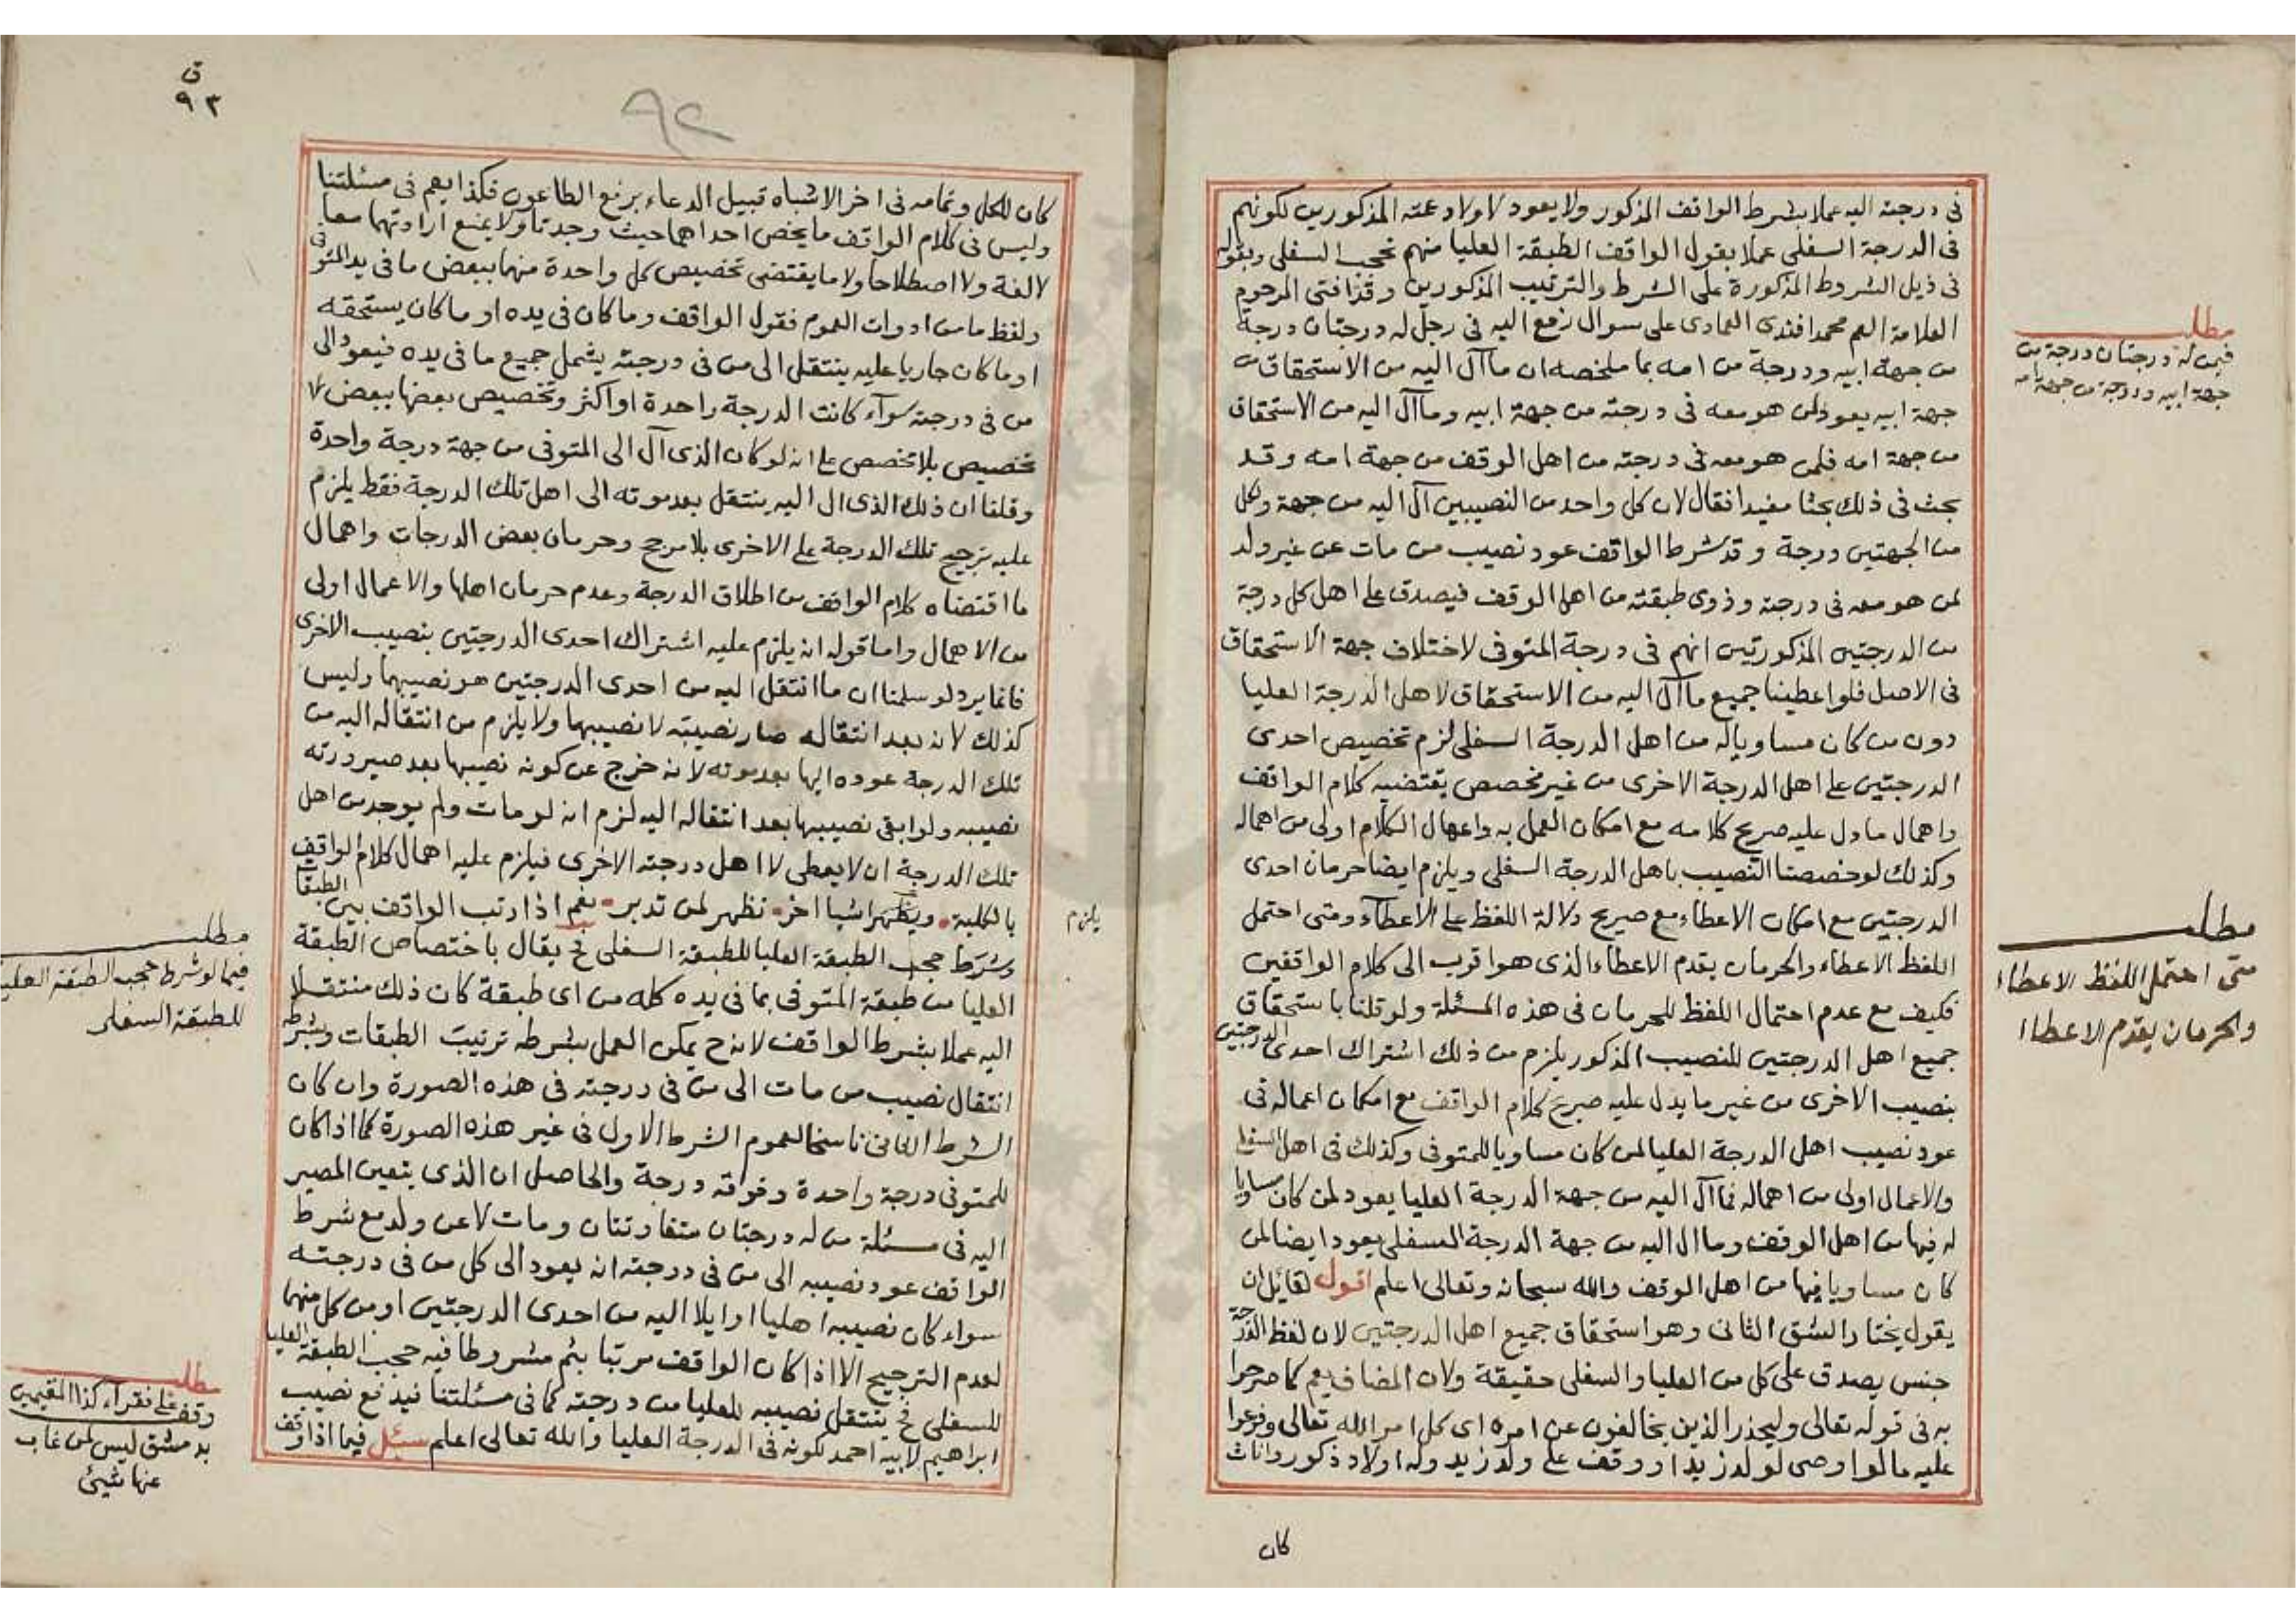 فى درجته اليه عملا بشرط الواقف المذكور ولا يعود لاولاد عمته المذكورين لكونهم
فى الدرجة السفلى عملا بقول الواقف الطبقة العليا منهم تحجب السفلى وبقوله
فى ذيل الشروط المذكورة على الشرط والترتيب المذكورين وقد افتى المرحوم
العلامة العم محمد افندى العمادى على سوال رفع اليه فى رجل له درجتان درجة
من جهة ابيه ودرجة من امه بما ملخصه ان ما آل اليه من الاستحقاق من
جهة ابيه يعود لمن هو معه فى درجته من جهة ابيه وما آل اليه من الاستحقاق
من جهة امه فلمن هو معه فى درجته من اهل الوقف من جهة امه وقد
بحث فى ذلك بحثا مفيدا فقال لان كل واحد من النصيبين آل اليه من جهة ولكل
من الجهتين درجة وقد شرط الواقف عود نصيب من مات عن غير ولد
لمن هو معه فى درجته وذوى طبقته من اهل الوقف فيصدق على اهل كل درجة
من الدرجتين المذكورتين انهم فى درجة المتوفى لاختلاف جهة الاستحقاق
فى الاصل فلو اعطينا جميع ما آل اليه من الاستحقاق لاهل الدرجة العليا
دون من كان مساويا له من اهل الدرجة السفلى لزم تخصيص احدى
الدرجتين على اهل الدرجة الاخرى من غير مخصص يقتضيه كلام الواقف
واهمال ما دل عليه صريح كلامه مع امكان العمل به واعمال الكلام اولى من اهماله
وكذلك لو خصصنا النصيب باهل الدرجة السفلى ويلزم ايضا حرمان احدى
الدرجتين مع امكان الاعطاء مع صريح دلالة اللفظ على الاعطآء ومتى احتمل
اللفظ الاعطاء والحرمان يقدم الاعطاء الذى هو اقرب الى كلام الواقفين
فكيف مع عدم احتمال اللفظ للحرمان فى هذه المسئلة ولو قلنا باستحقاق
جميع اهل الدرجتين للنصيب المذكور يلزم من ذلك اشتراك احدى الدرجتين
بنصيب الاخرى من غير ما يدل عليه صريح كلام الواقف مع امكان اعماله فى
عود نصيب اهل الدرجة العليا لمن كان مساويا للمتوفى وكذلك فى اهل السفلى
والاعمال اولى من اهماله فما آل اليه من جهة الدرجة العليا يعود لمن كان مساويا
له فيها من اهل الوقف وما ال اليه من جهة الدرجة السفلى يعود ايضا لمن
كان مساويا فيها من اهل الوقف والله سبحانه وتعالى اعلم اقول لقائل ان
يقول يختار الشق الثانى وهو استحقاق جميع اهل الدرجتين لان لفظ الدرجة
جنس يصدق على كل من العليا والسفلى حقيقة ولان المضاف يعم كما صرحوا
به فى قوله تعالى وليحذر الذين يخالفون عن امره اى كل امر الله تعالى وفرعوا
عليه ما لو اوصى لولد زيد او وقف على ولد زيد وله اولاد ذكور واناث
كان
مطلب
فيمن له درجتان درجة من
جهة ابيه ودرجة من جهة امه
مطلب
متى احتمل اللفظ الاعطاء
والحرمان يقدم الاعطاء
ق
٩٣
٩٢
كان للكل وتمامه فى اخر الاشباه قبيل الدعاء برفع الطاعون فكذا يعم فى مسئلتنا
وليس فى كلام الواقف ما يخص احداهما حيث وجدتا ولا يمنع ارادتهما معا
لا لغة ولا اصطلاحا ولا ما يقتضى تخصيص كل واحدة منهما ببعض ما فى يد المتوفى
ولفظ ما من ادوات العموم فقول الواقف وما كان فى يده او ما كان يستحقه
او ما كان جاريا عليه ينتقل الى من فى درجته يشمل جميع ما فى يده فيعود الى
من فى درجته سوآء كانت الدرجة واحدة او اكثر وتخصيص بعضها ببعض
تخصيص بلا مخصص على انه لو كان الذى آل الى المتوفى من جهة درجة واحدة
وقلنا ان ذلك الذى ال اليه ينتقل بعد موته الى اهل تلك الدرجة فقط يلزم
عليه ترجيح تلك الدرجة على الاخرى بلا مرجح وحرمان بعض الدرجات واهمال
ما اقتضاه كلام الواقف من اطلاق الدرجة وعدم حرمان اهلها والاعمال اولى
من الاهمال واما قوله انه يلزم عليه اشتراك احدى الدرجتين بنصيب الاخرى
فانما يرد لو سلمنا ان ما انتقل اليه من احدى الدرجتين هو نصيبها وليس
كذلك لانه بعد انتقاله صار نصيبه لا نصيبها ولا يلزم من انتقاله اليه من
تلك الدرجة عوده اليها بعد موته لانه خرج عن كونه نصيبها بعد صيرورته
نصيبه ولو ابقى نصيبها بعد انتقاله اليه لزم انه لو مات ولم يوجد من اهل
تلك الدرجة ان لا يعطى لا اهل درجته الاخرى فيلزم عليه اهمال كلام الواقف
بالكلية ويظهر اشيا اخر تظهر لمن تدبر نعم اذا رتب الواقف بين الطبقات
وشرط حجب الطبقة العليا للطبقة السفلى فح يقال باختصاص الطبقة
العليا من طبقة المتوفى بما فى يده كله من اى طبقة كان ذلك منتقلا
اليه عملا بشرط الواقف لانه ح يمكن العمل بشرطه ترتيب الطبقات وبشرطه
انتقال نصيب من مات الى من فى درجته فى هذه الصورة وان كان
الشرط الثانى ناسخا لعموم الشرط الاول فى غير هذه الصورة كما اذا كان
للمتوفى درجة واحدة وفوقه درجة والحاصل ان الذى يتعين المصير
اليه فى مسئلة من له درجتان متفاوتتان ومات لا عن ولد مع شرط
الواقف عود نصيبه الى من فى درجته انه يعود الى كل من فى درجته
سواء كان نصيبه اهليا او ايلا اليه من احدى الدرجتين او من كل منهما
لعدم الترجيح الا اذا كان الواقف مرتبا بثم مشروطا فيه حجب الطبقة العليا
للسفلى فح ينتقل نصيبه للعليا من درجته كما فى مسئلتنا فيدفع نصيب
ابراهيم لابيه احمد لكونه فى الدرجة العليا والله تعالى اعلم سئل فيما اذا وقف
يلزم
مطلب
فيما لو شرط حجب الطبقة العليا
للطبقة السفلى
مطلب
وقف على فقرآء كذا المقيمين
بدمشق ليس لمن غاب
عنها شيئ